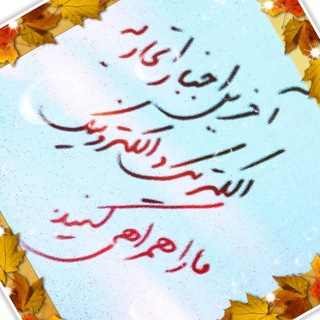 آخرین اخبار اتحادیه
الکتریک و الکترونیک
ما را همراهی کنید